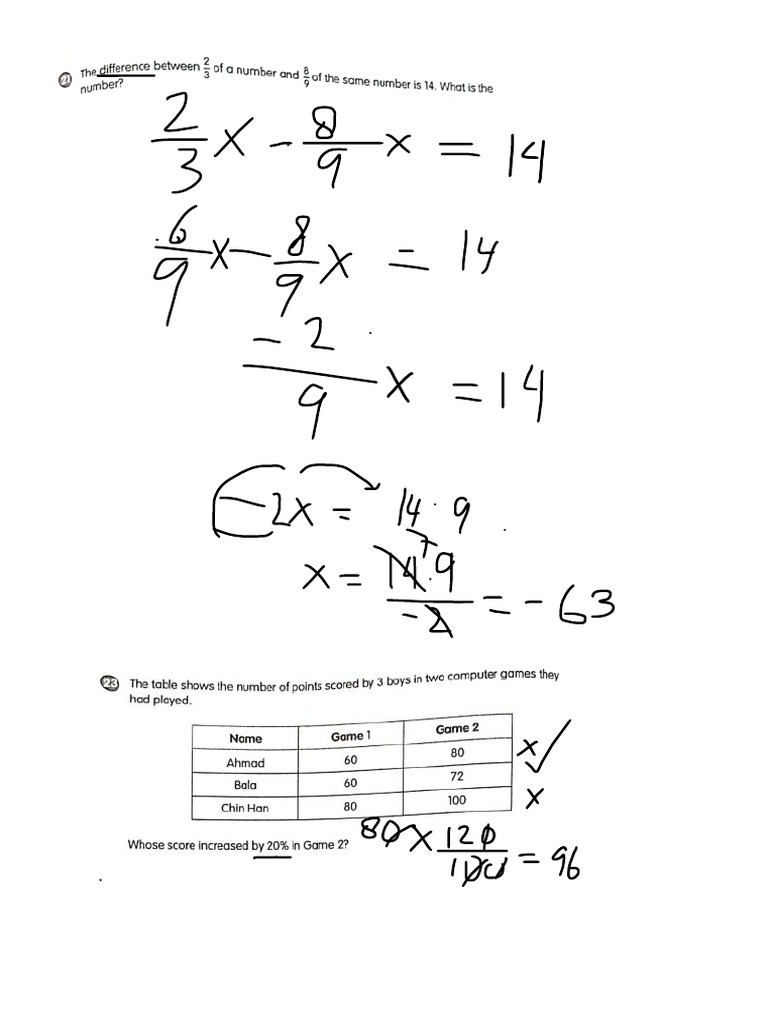 21 The difference between 2/3 of a number and 8/9 of the same number is 14. What is the
number?
2/3 x - 8/9 x = 14
6/9 x - 8/9 x = 14
-2/9 x = 14
-2x = 14 · 9
x = 14 · 9 / -2 = -63
7
23 The table shows the number of points scored by 3 boys in two computer games they
had played.
Name Game 1 Game 2
Ahmad 60 80 x
Bala 60 72 ✓
Chin Han 80 100 x
Whose score increased by 20% in Game 2?
80 x 120/100 = 96